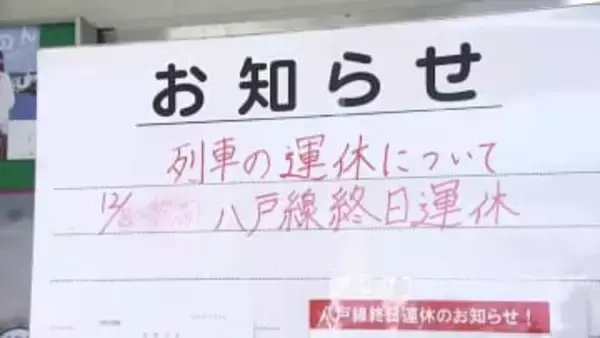 お知らせ
列車の運休について
12/ 八戸線終日運休
八戸線終日運休のお知らせ！